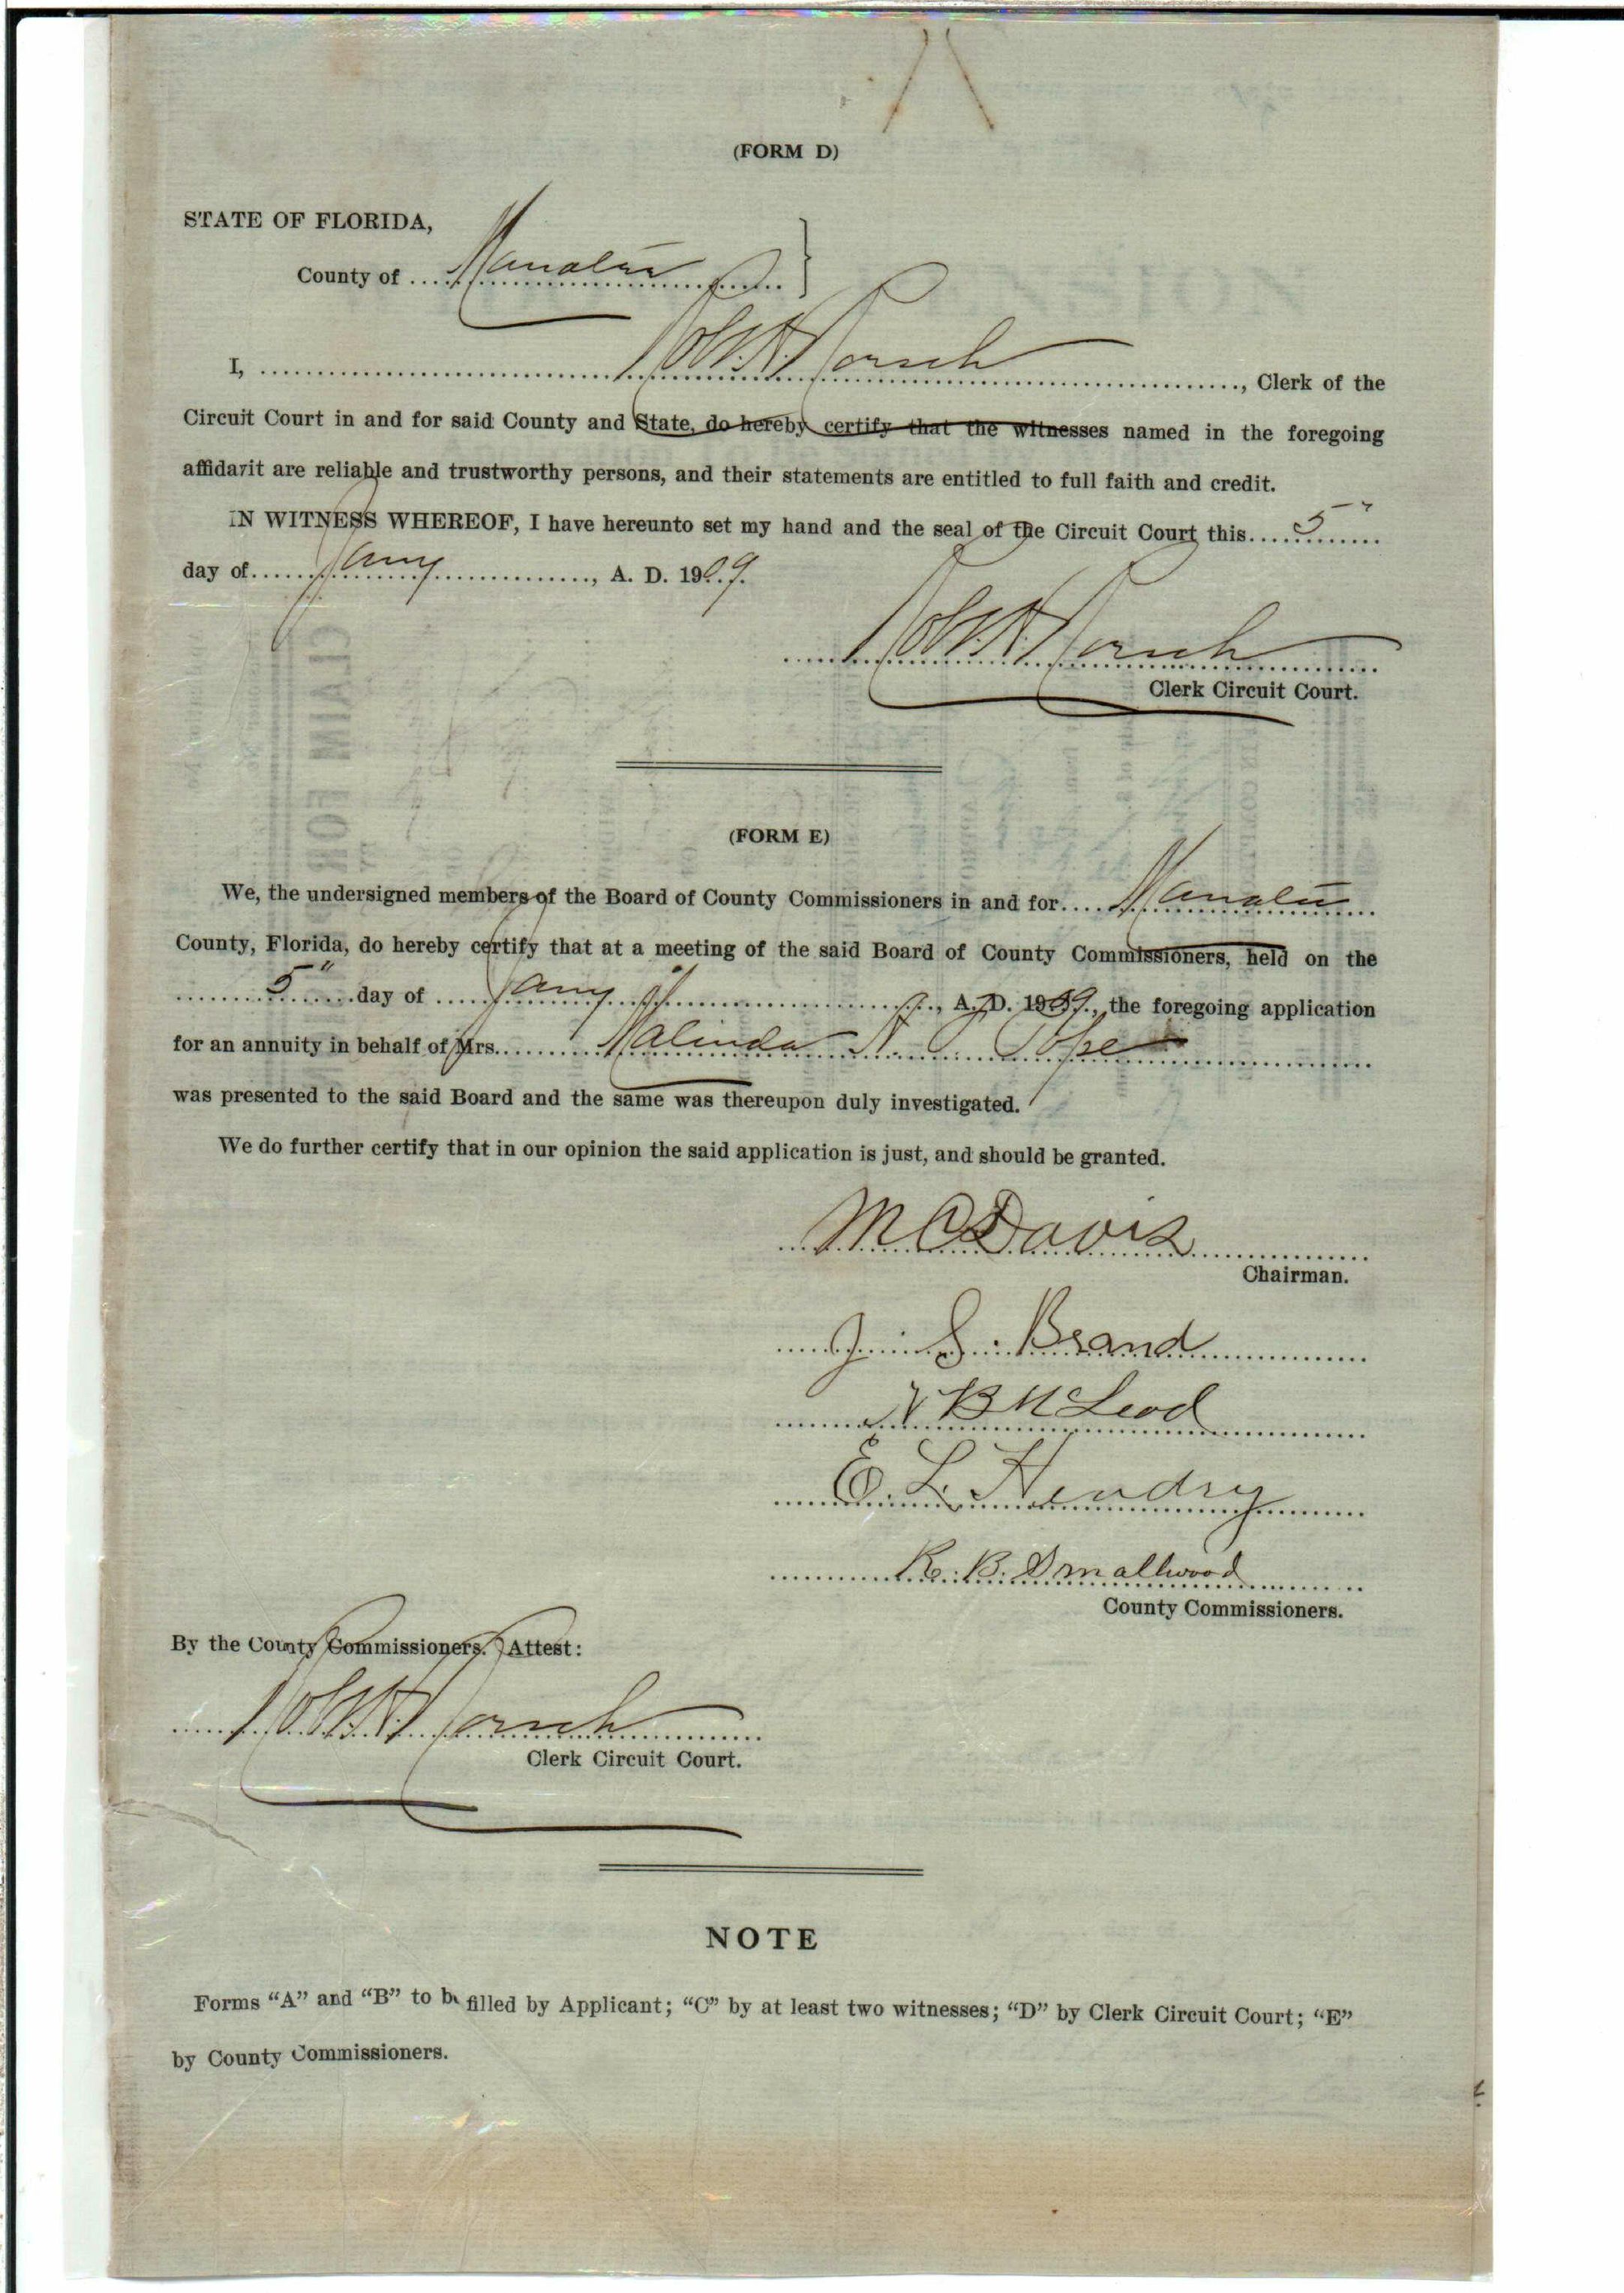 (FORM D)
STATE OF FLORIDA,
County of Manatee
I, Robt. H. Roesch, Clerk of the
Circuit Court in and for said County and State, do hereby certify that the witnesses named in the foregoing
affidavit are reliable and trustworthy persons, and their statements are entitled to full faith and credit.
IN WITNESS WHEREOF, I have hereunto set my hand and the seal of the Circuit Court this 5"
day of Jany, A. D. 1909.
Robt. H. Roesch
Clerk Circuit Court.
(FORM E)
We, the undersigned members of the Board of County Commissioners in and for Manatee
County, Florida, do hereby certify that at a meeting of the said Board of County Commissioners, held on the
5" day of Jany, A. D. 1909, the foregoing application
for an annuity in behalf of Mrs. Malinda Pope
was presented to the said Board and the same was thereupon duly investigated.
We do further certify that in our opinion the said application is just, and should be granted.
M C Davis
Chairman.
J. S. Brand
B McLeod
E. L. Hendry
R. B. Smallwood
County Commissioners.
By the County Commissioners. Attest:
Robt. H. Roesch
Clerk Circuit Court.
NOTE
Forms "A" and "B" to be filled by Applicant; "C" by at least two witnesses; "D" by Clerk Circuit Court; "E"
by County Commissioners.